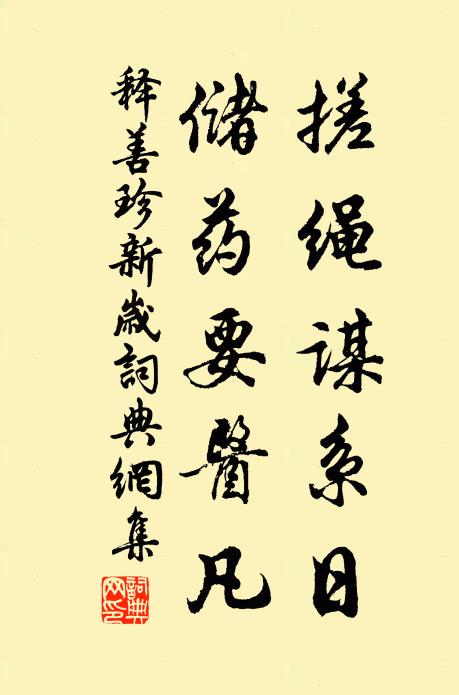 搓绳谋系日
储药要医凡
释善珍新岁词典网集
词典网印